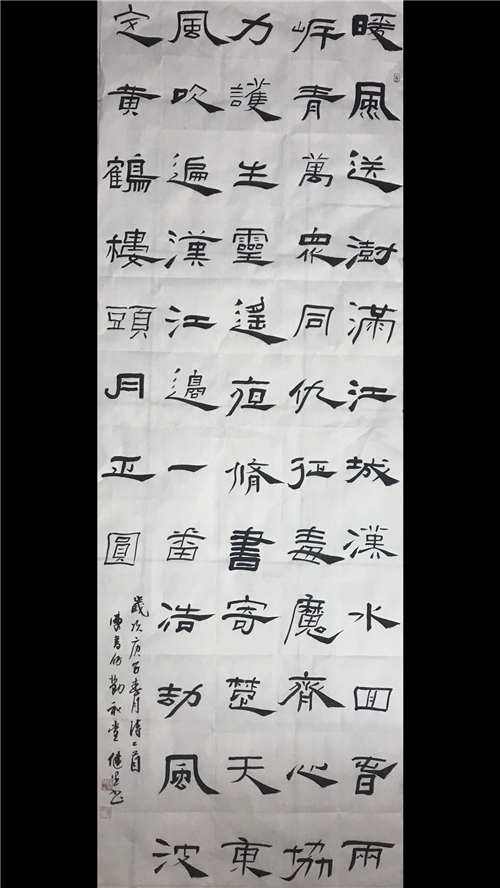 暖風送澍滿江城漢水回旾兩
岸青萬眾同仇征毒魔齊心協
力護生靈遙亱脩書寄楚天東
風吹遍漢江邊一番浩劫風波
定黃鶴樓頭月正圓
歲次庚子春月詩二首
書於勤永堂